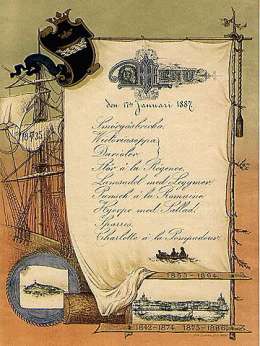 Menu
den 17de Januari 1887.
Smörgåsbricka,
Victoriasoppa,
Darioler,
Stör à la Régence,
Lammsadel med Legymer,
Punsch à la Romaine
Hjerpe med Sallad,
Sparris,
Charlotte à la Pompadour.
1853-1894.
1642-1874. 1875-1886.